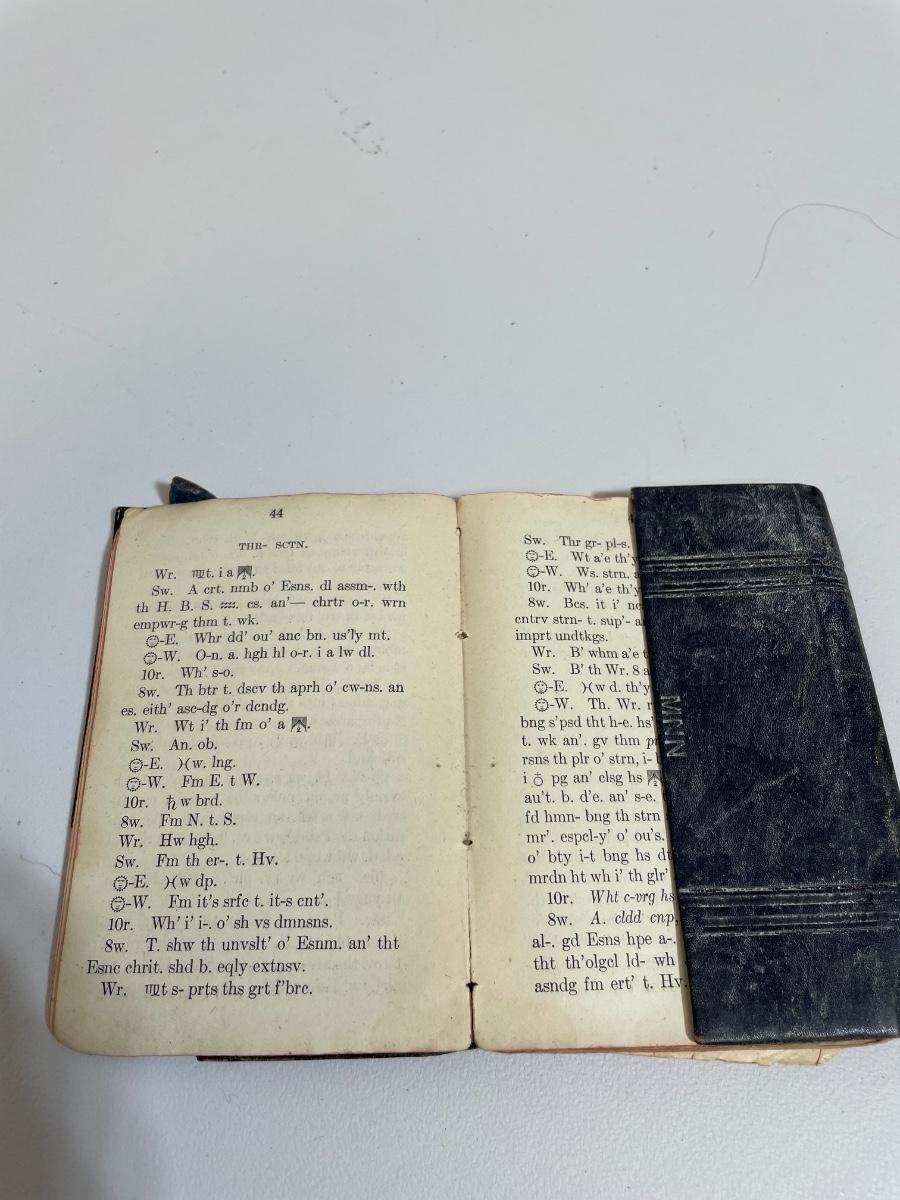 44
THR- SCTN.
Wr. ♍t. i a
Sw. A crt. nmb o' Esns. dl assm-. wth
th H. B. S. ♒. cs. an'— chrtr o-r. wrn
empwr-g thm t. wk.
-E. Whr dd' ou' anc bn. us'ly mt.
-W. O-n. a. hgh hl o-r. i a lw dl.
10r. Wh'. s-o.
8w. Th btr t. dscv th aprh o' cw-ns. an
es. eith' asc-dg o'r dcndg.
Wr. Wt i' th fm o' a
Sw. An. ob.
-E. )(w. lng.
-W. Fm E. t W.
10r. ♄ w brd.
8w. Fm N. t. S.
Wr. Hw hgh.
Sw. Fm th er-. t. Hv.
-E. )(w dp.
-W. Fm it's srfc t. it-s cnt'.
10r. Wh' i' i-. o' sh vs dmnsns.
8w. T. shw th unvslt' o' Esnm. an' tht
Esnc chrit. shd b. eqly extnsv.
Wr. ♍t s- prts ths grt f'brc.
Sw. Thr gr- pl-s.
-E. Wt a'e th'y
-W. Ws. strn. a
10r. Wh' a'e th'y
8w. Bcs. it i' nc
cntrv strn- t. sup'- a
imprt undtkgs.
Wr. B' whm a'e t
Sw. B' th Wr. 8 a
-E. )(w d. th'y
-W. Th. Wr. r
bng s'psd tht h-e. hs'
t. wk an'. gv thm p
rsns th plr o' strn, i-
i ♁ pg an' clsg hs
au't. b. d'e. an' s-e.
fd hmn- bng th strn
mr'. espcl-y' o' ou's.
o' bty i-t bng hs d
mrdn ht wh i' th glr'
10r. Wht c-vrg hs
8w. A. cldd cnp,
al-. gd Esns hpe a-.
tht th'olgcl ld- wh
asndg fm ert' t. Hv.
MINN